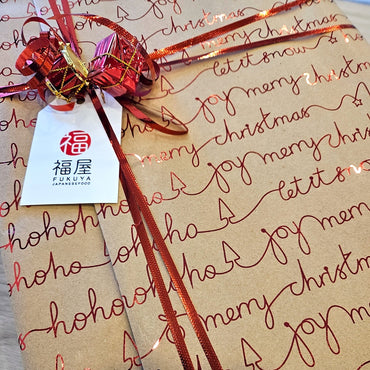 merry christmas
let it snow
joy merry chris
hoho
merry christmas
joy merry christmas
let it snow
joy merry
hohoho
merry christmas
hohoho
joy merry
福
福屋
FUKUYA
JAPANESE FOOD